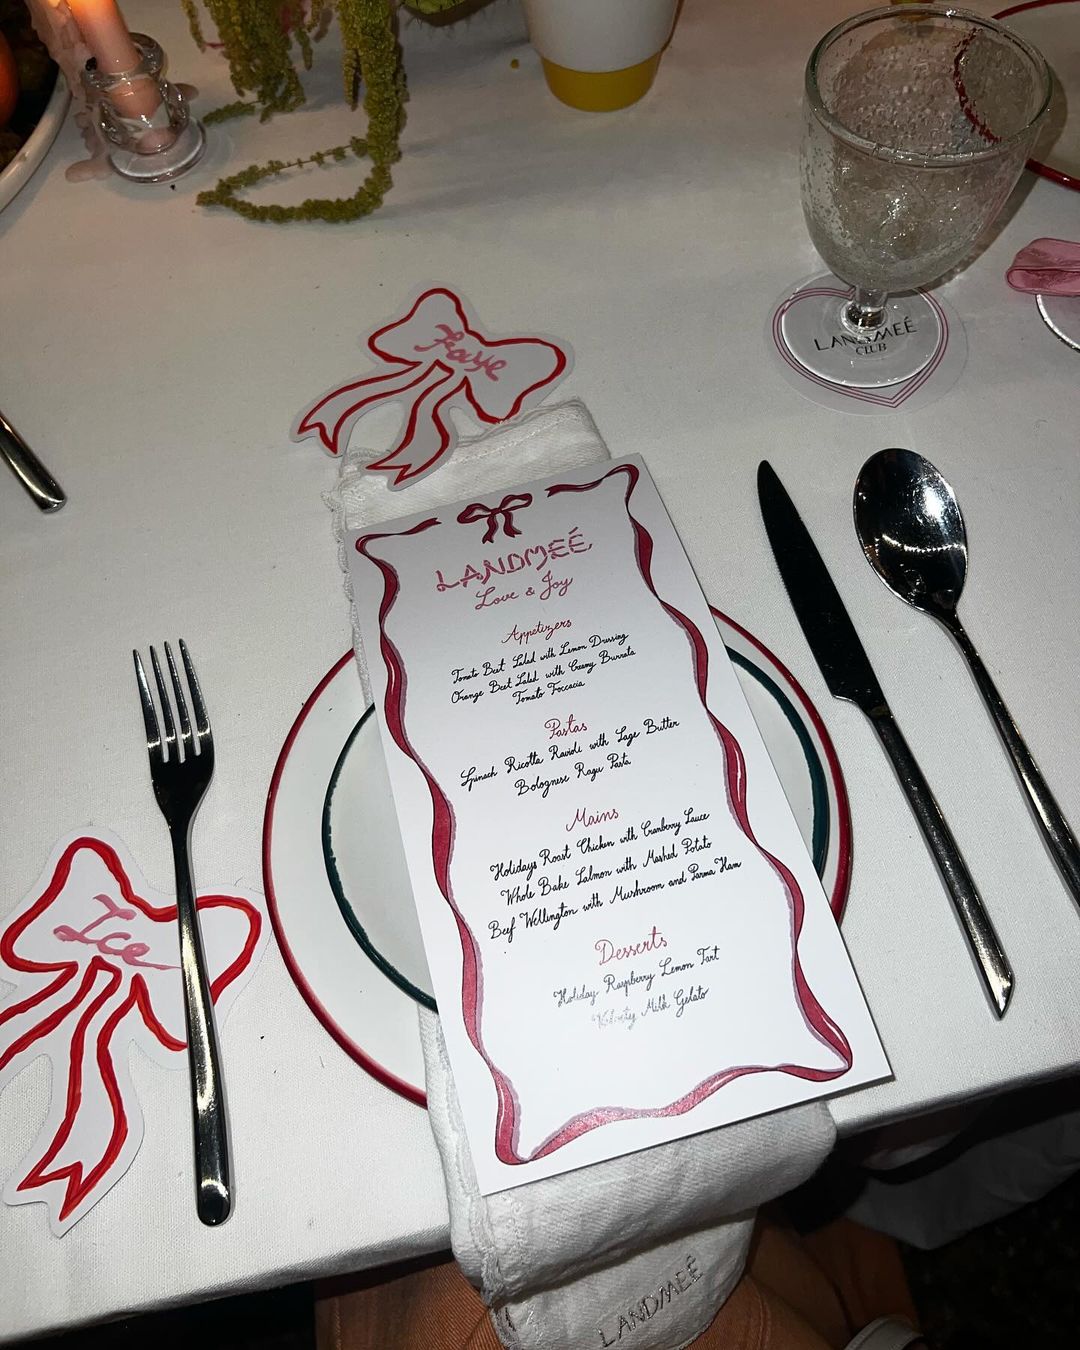 Faye
LANDMEÉ
CLUB
LANDMEÉ
Love & Joy
Appetizers
Tomato Beet Salad with Lemon Dressing
Orange Beet Salad with Creamy Burrata
Tomato Foccacia
Pastas
Spinach Ricotta Ravioli with Sage Butter
Bolognese Ragu Pasta
Mains
Holidays Roast Chicken with Cranberry Sauce
Whole Bake Salmon with Mashed Potato
Beef Wellington with Mushroom and Parma Ham
Desserts
Holiday Raspberry Lemon Tart
Milk Gelato
Ice
LANDMEÉ